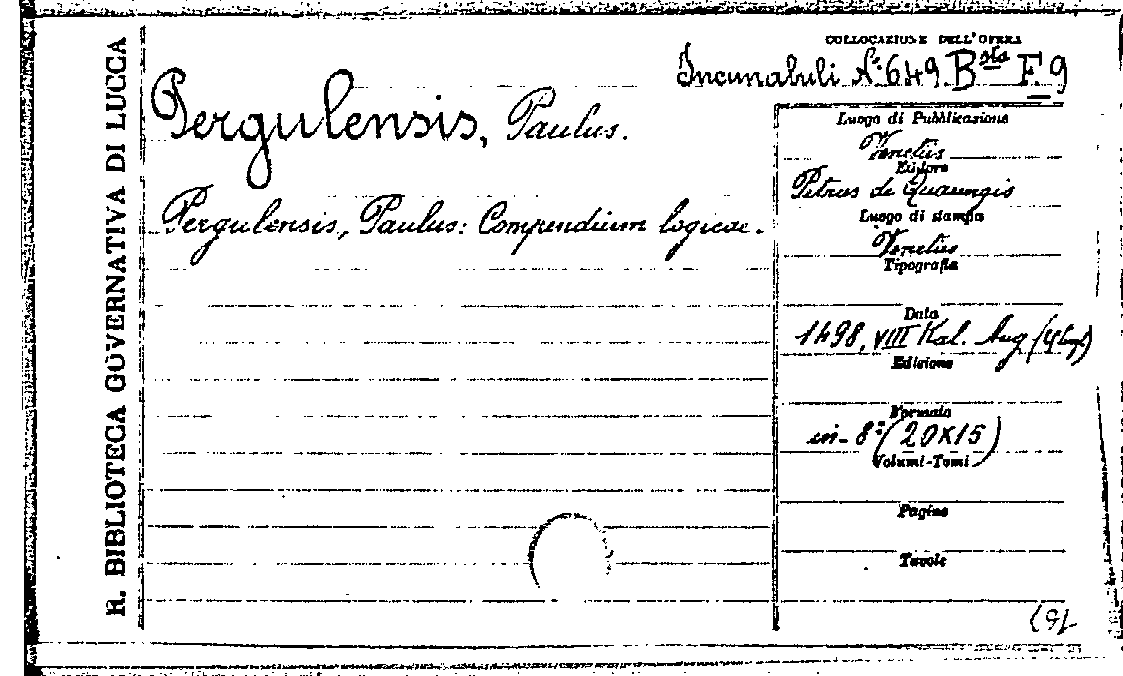 R. BIBLIOTECA GOVERNATIVA DI LUCCA
COLLOCAZIONE DELL'OPERA
Incunabuli N.° 649. Bsta F. 9
Pergulensis, Paulus.
Pergulensis, Paulus: Compendium logicae.
Luogo di Pubblicazione
Venetiis
Editore
Petrus de Quarengis
Luogo di stampa
Venetiis
Tipografia
Data
1498, VIII Kal. Aug
Edizione
Formato
in-8° (20X15)
Volumi-Tomi
Pagine
Tavole